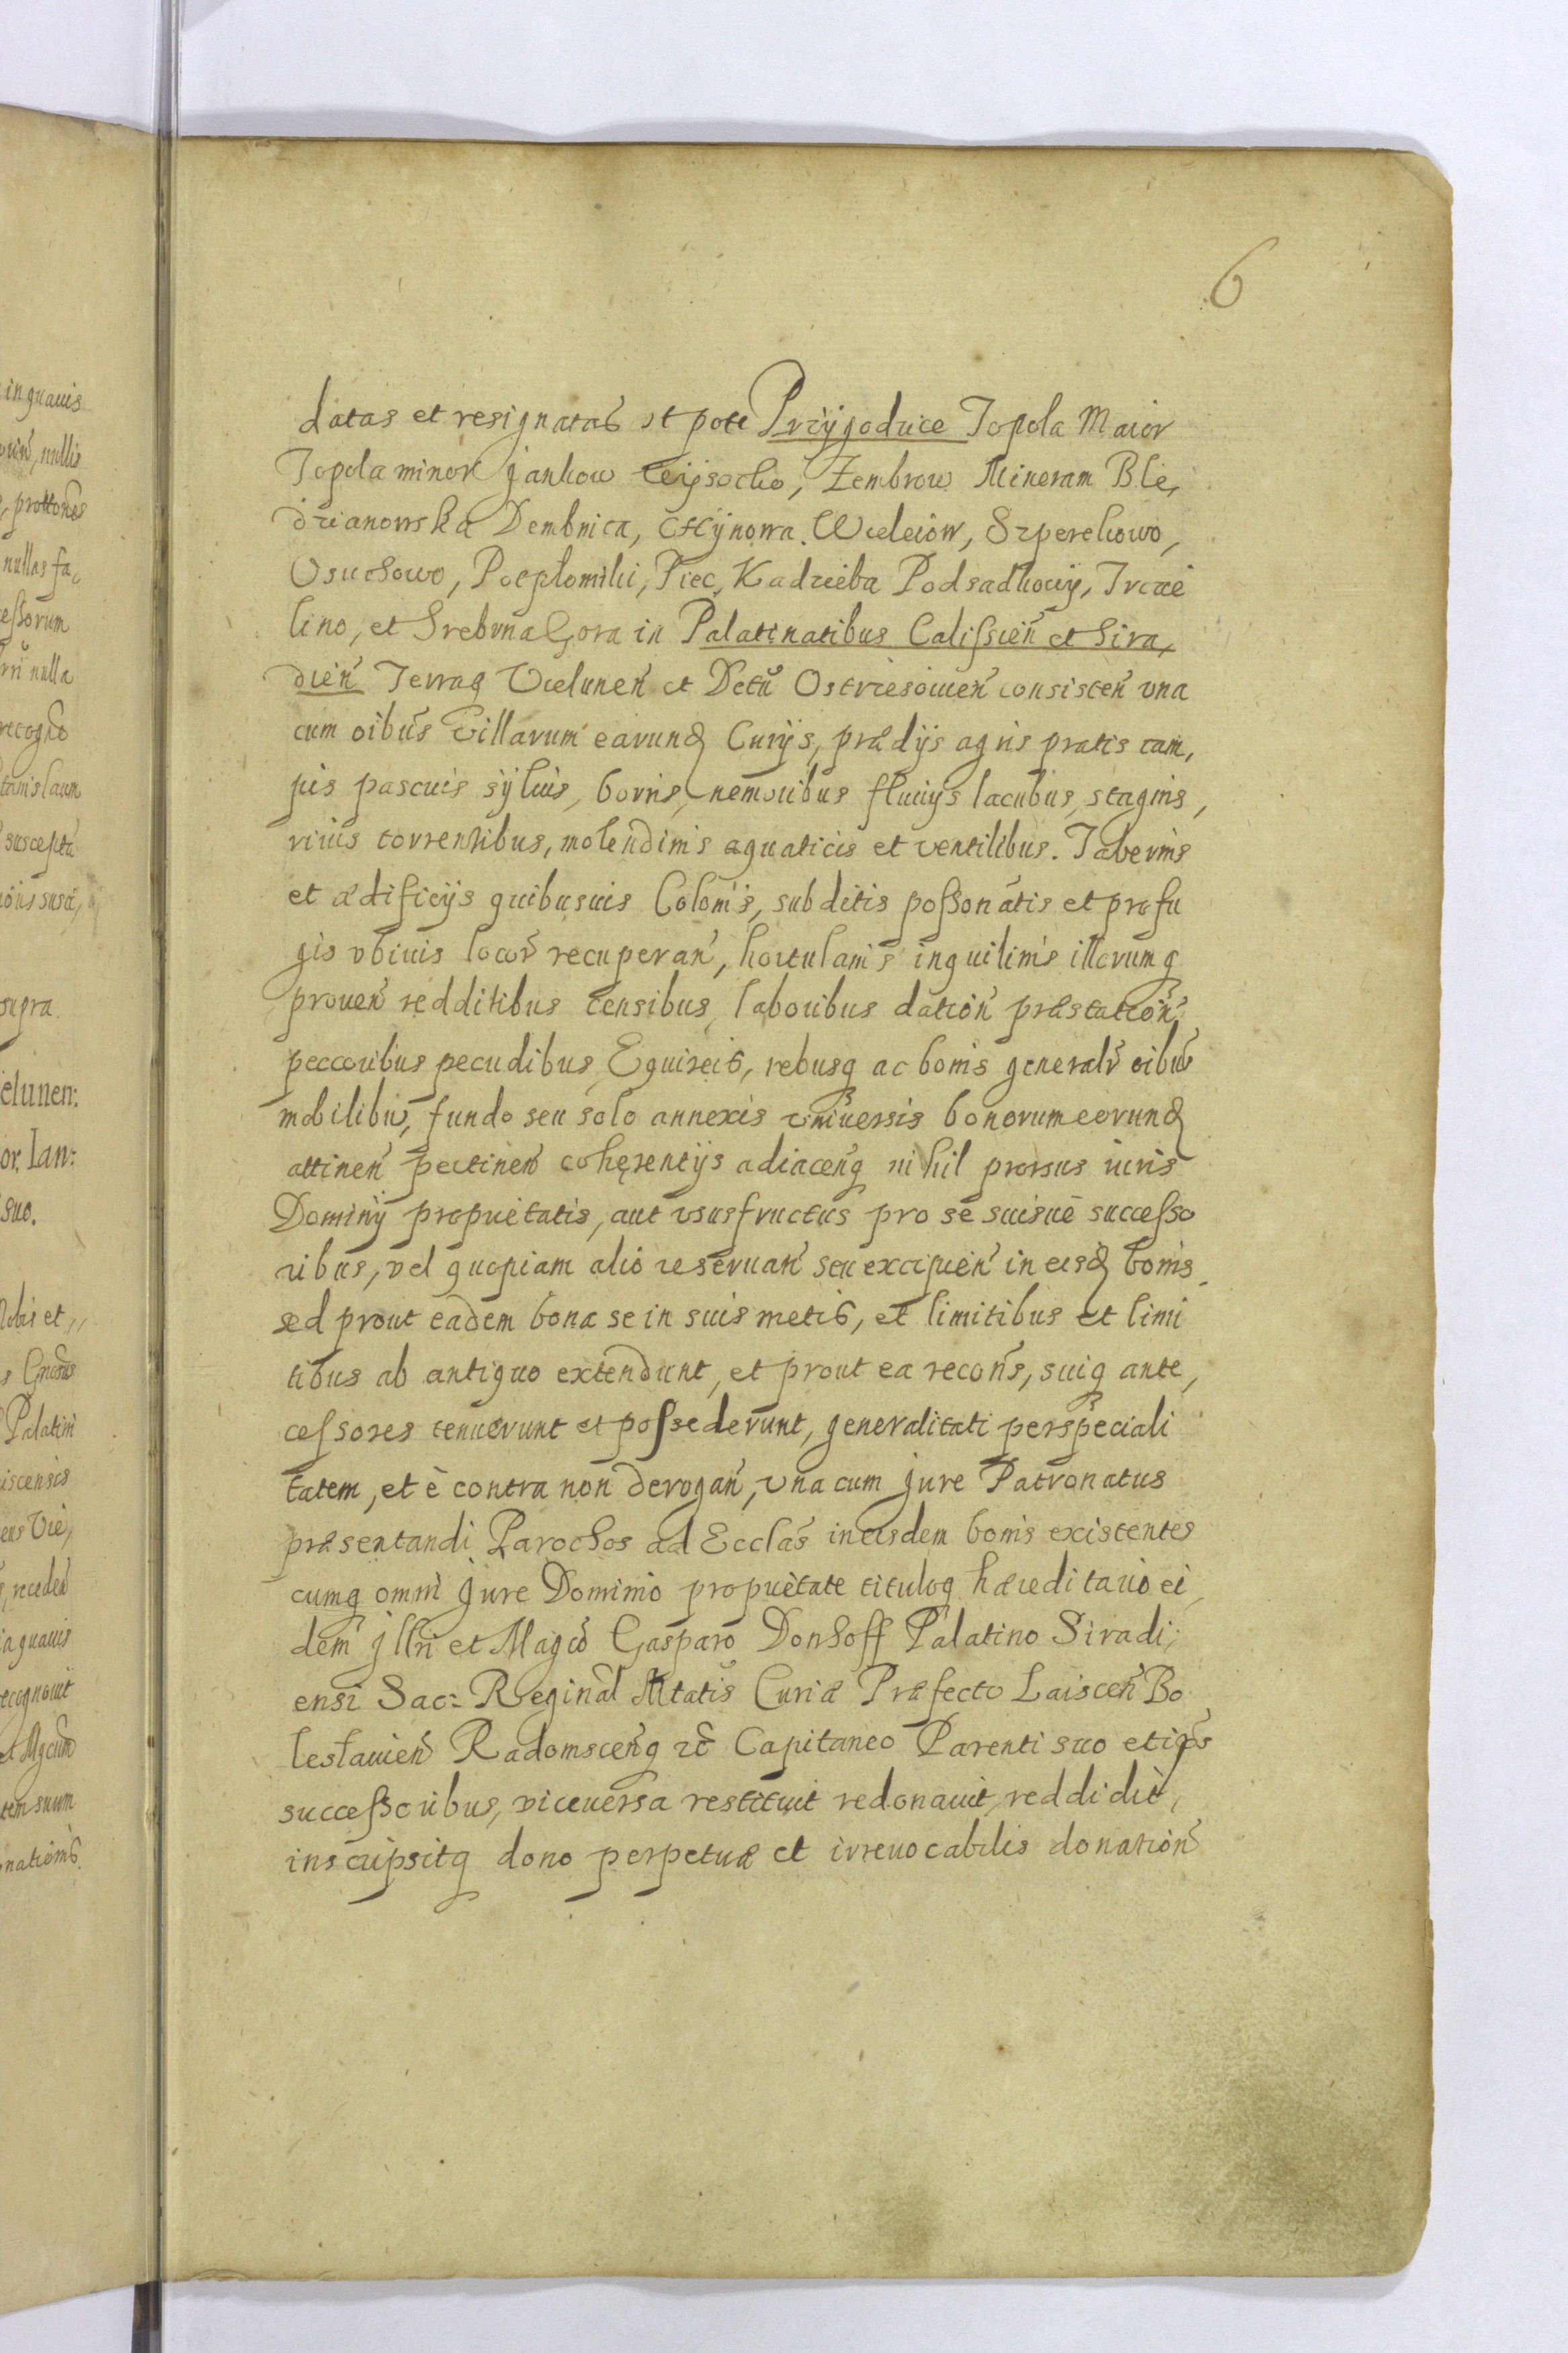 6
datas et resignatas ut pote Przÿgodzice Topola Maior
Topola minor Jankow Wÿsocko, Zembrow Mineram Ble,
dzianowska Dembnica, Chÿnowa. Wcleiow, Szperekowo,
Osuchowo, Poeplomiki, Piec, Kadzieba Podsadkowÿ, Trcae
lino, et SrebrnaGora in Palatinatibus Calissień et Sira,
dień Terraq Vielunen̄ et Dctū Ostrzesouień consisteń una
cum oibus villarum earunq Curÿs, prædÿs agris pratis cam,
pis pascuis sÿluis, borris, nemoribus fluuÿs lacubus, stagnis,
riuis torrentibus, molendinis aquaticis et ventilibus. Tabernis
et ædificÿs quibusuis Colonis, subditis possonatis et profu
gis ubiuis locor̄ recuperan̄, hortulanis inquilinis illorumq
prouen̄ redditibus censibus, laboribus dation̄ præstation̄
peccoribus pecudibus, Equireis, rebusq ac bonis generalr̄ oibus
mobilibus, fundo seu solo annexis vniuersis bonorum eorunq
attinen̄ pertinen̄ cohęrentÿs adiacen̄q nihil prorsus iuris
Dominÿ proprietatis, aut vsusfructus pro se suisue successo
ribus, vel quopiam alio reseruan̄ seu excipien̄ in eisq bonis
sed prout eadem bona se in suis metis, et limitibus et limi
tibus ab antiquo extendunt, et prout ea recon̄s, suiq ante,
cessores tenuerunt et possederunt, generalitati per speciali
tatem, et è contra non derogan̄, vna cum Jure Patronatus
præsentandi Parochos ad Ecclās in eisdem bonis existentes
cumq omni Jure Dominio proprietate tituloq hæreditario ei,
dem Jllri et Magco Gasparo Donhoff Palatino Siradi,
ensi Sac: Reginal Mtatis Curiæ Præfecto Laiscen̄ Bo
leslauien̄ Radomscen̄q zc̄ Capitaneo Parenti suo et ip̄s
successoribus, viceuersa restituit redonauit, reddidit,
inscripsitq dono perpetuæ et irreuocabilis donation̄